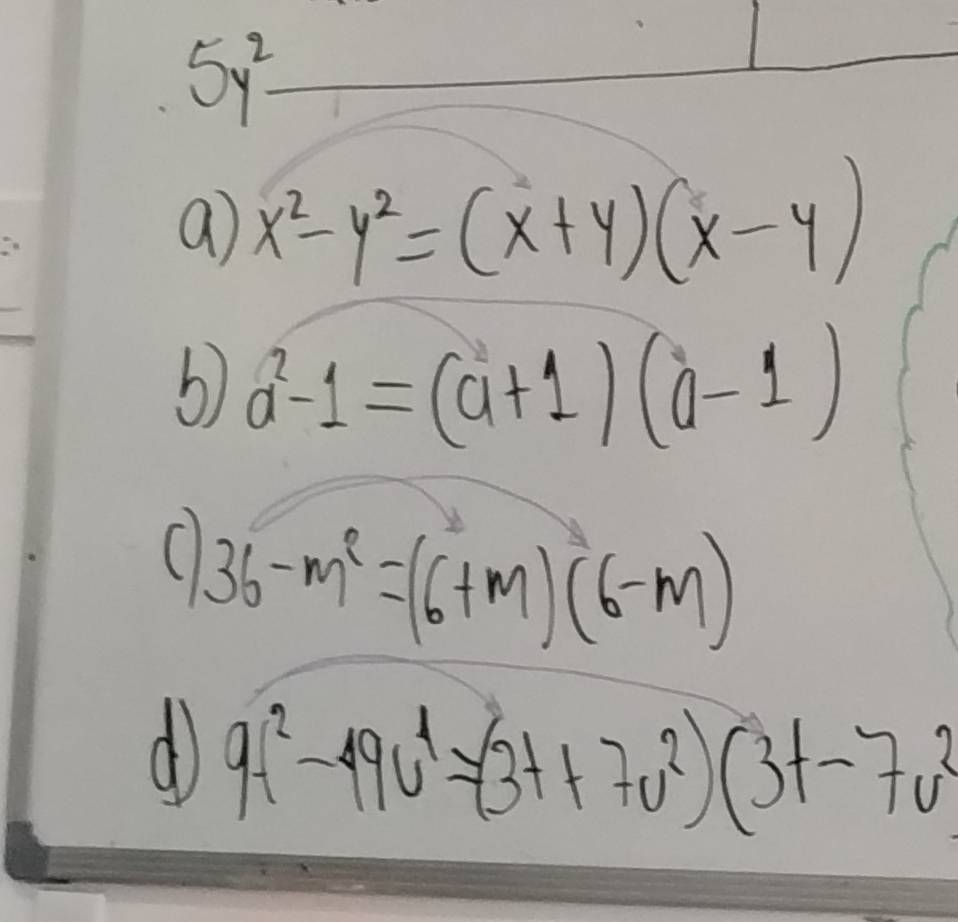 5y²
a) x² - y² = (x + y)(x - y)
b) a² - 1 = (a + 1)(a - 1)
c) 36 - m² = (6 + m)(6 - m)
d) 9t² - 49u⁴ = (3t + 7u²)(3t - 7u²